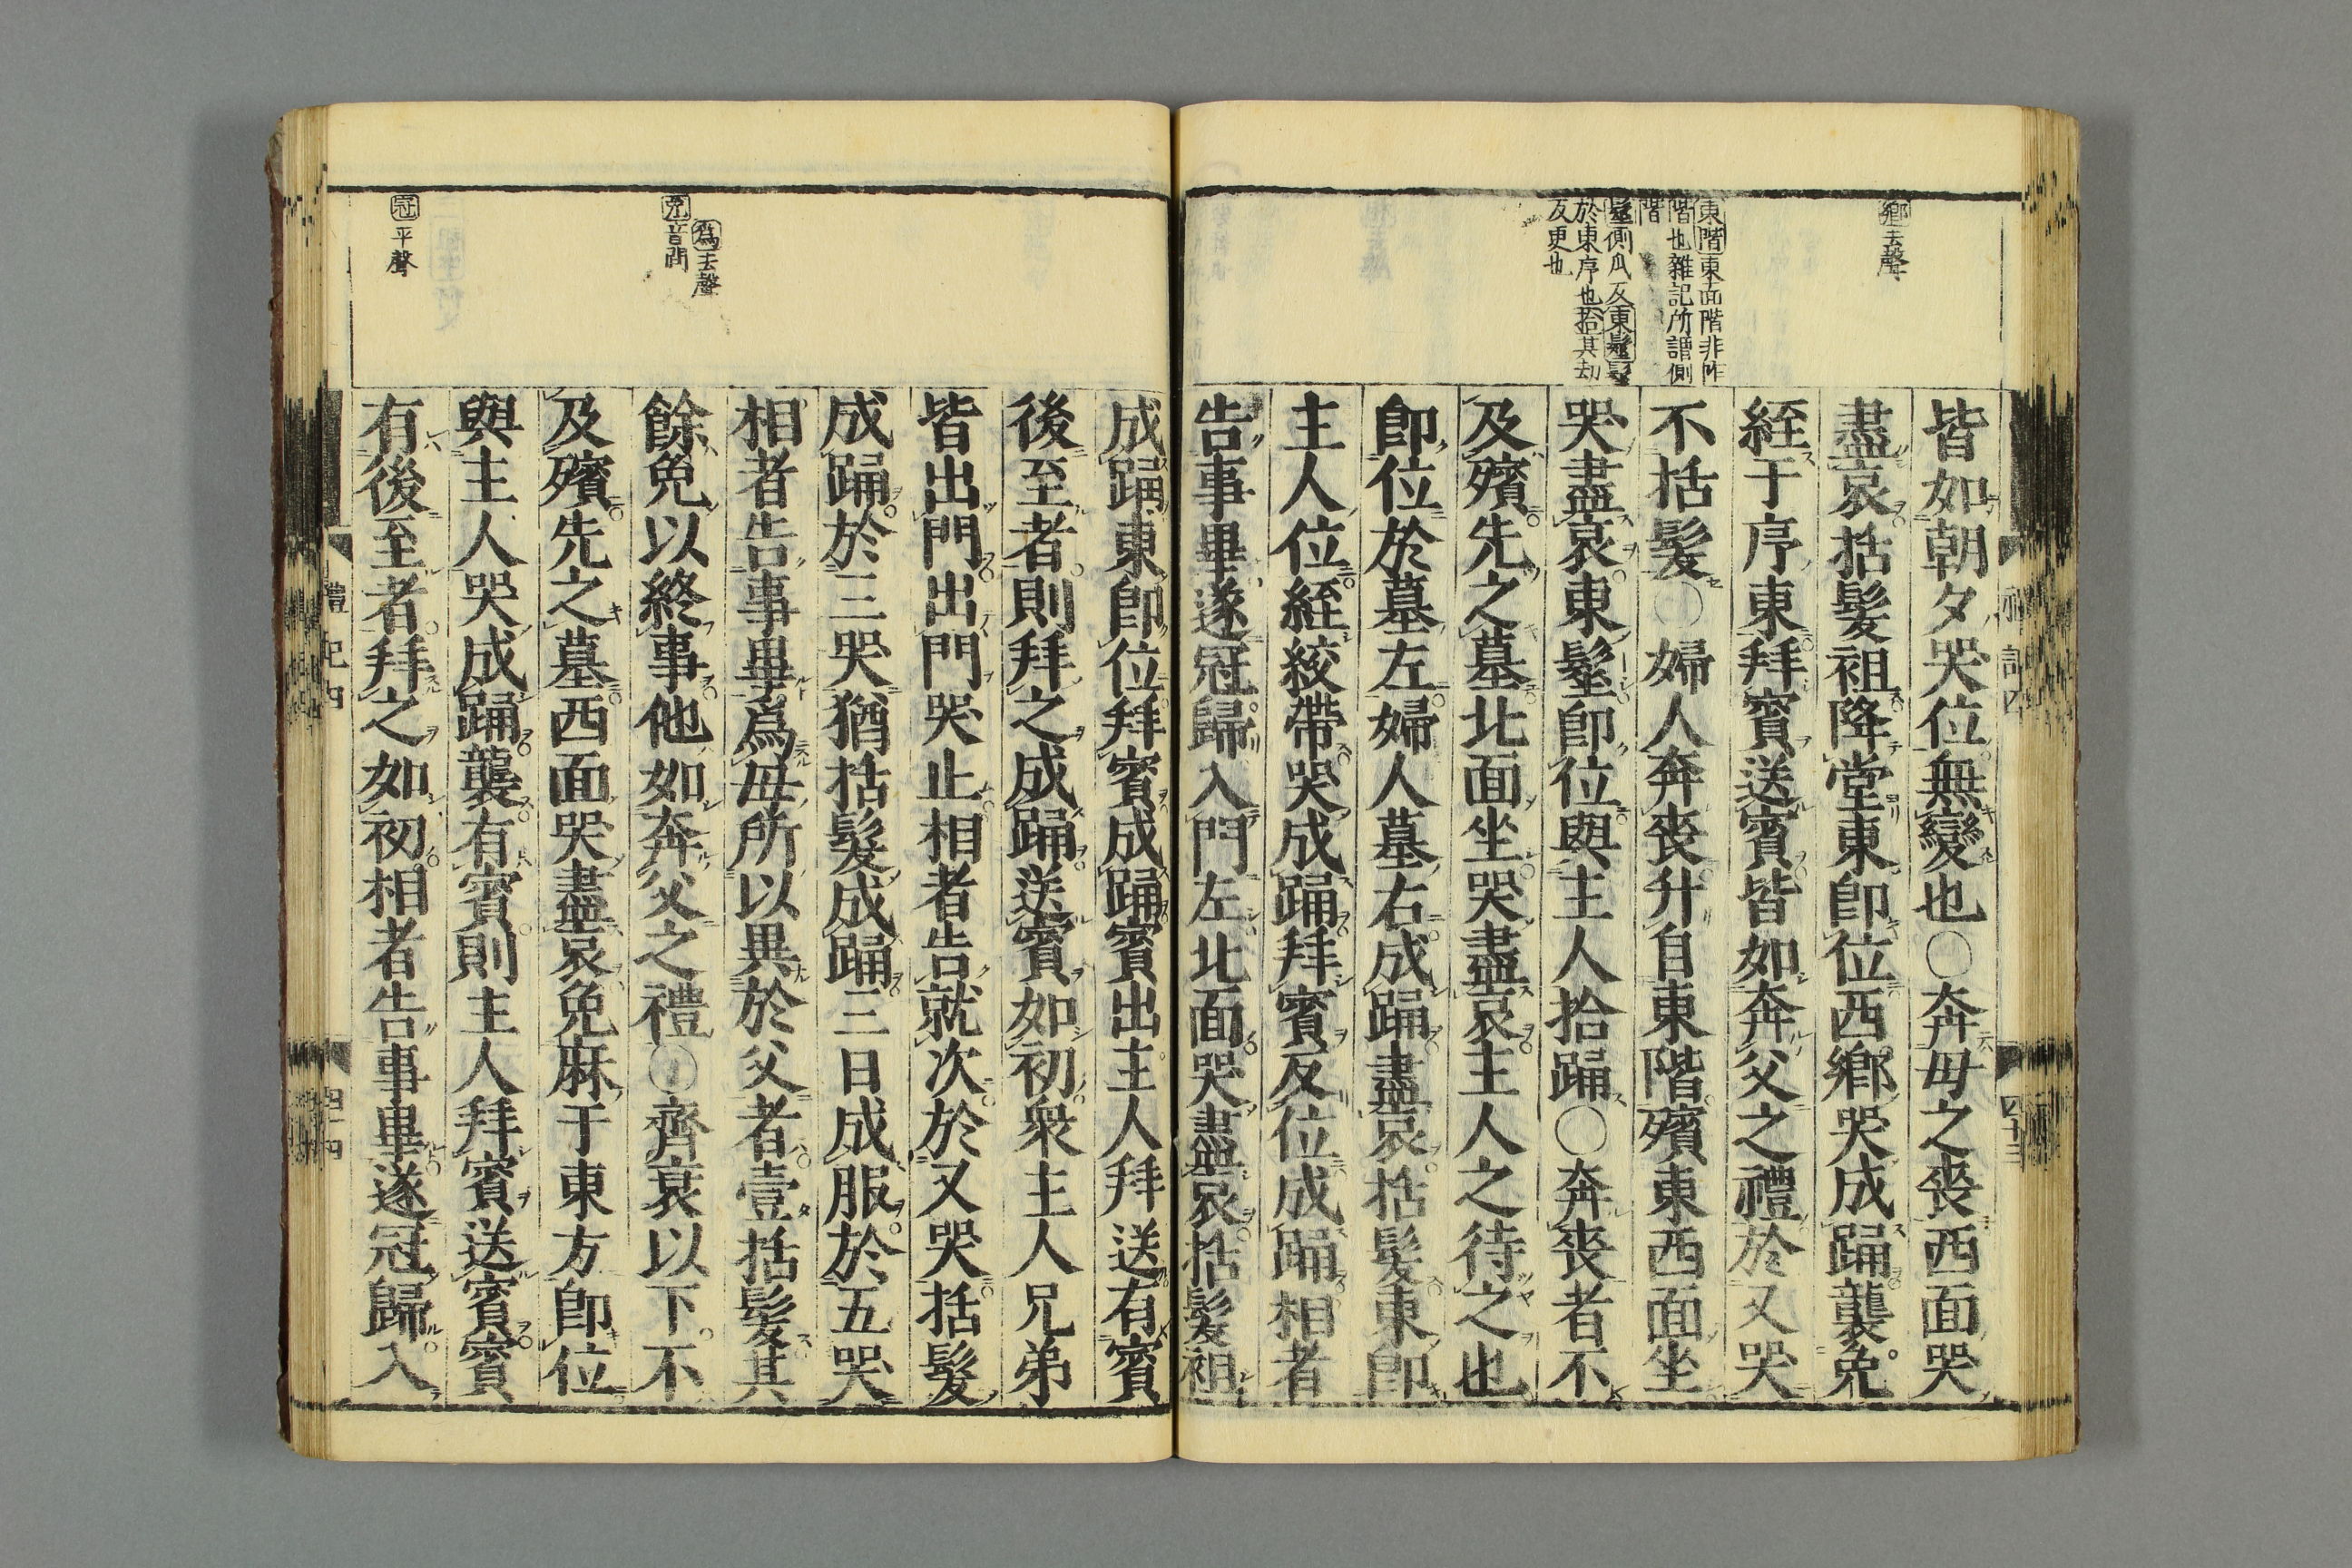 鄉去聲
東階東面階非阼
階也雜記所謂側
階
髽側瓜反東髽髽
於東序也拾其劫
反更也
皆如朝夕哭位無變也○奔母之喪西面哭
盡哀括髮袒降堂東即位西鄉哭成踊襲免
絰于序東拜賓送賓皆如奔父之禮於又哭
不括髮○婦人奔喪升自東階殯東西面坐
哭盡哀東髽即位與主人拾踊○奔喪者不
及殯先之墓北面坐哭盡哀主人之待之也
即位於墓左婦人墓右成踊盡哀括髮東即
主人位絰絞帶哭成踊拜賓反位成踊相者
告事畢遂冠歸入門左北面哭盡哀括髮袒
為去聲
免音問
冠平聲
成踊東即位拜賓成踊賓出主人拜送有賓
後至者則拜之成踊送賓如初衆主人兄弟
皆出門出門哭止相者告就次於又哭括髮
成踊於三哭猶括髮成踊三日成服於五哭
相者告事畢爲母所以異於父者壹括髮其
餘免以終事他如奔父之禮○齊衰以下不
及殯先之墓西面哭盡哀免麻于東方即位
與主人哭成踊襲有賓則主人拜賓送賓賓
有後至者拜之如初相者告事畢遂冠歸入
禮記四